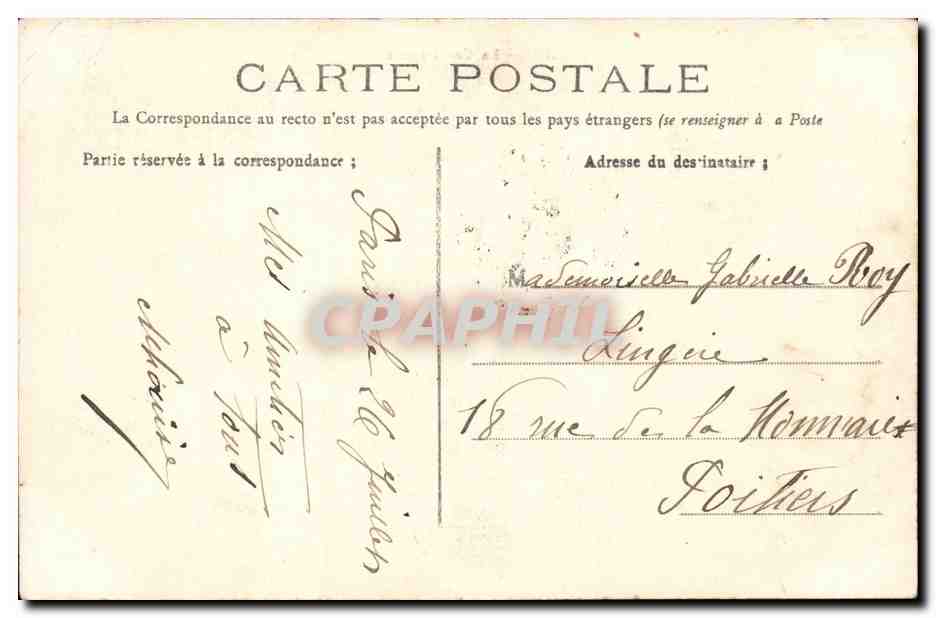 CARTE POSTALE
La Correspondance au recto n'est pas acceptée par tous les pays étrangers (se renseigner à a Poste
Partie réservée à la correspondance ;
Paris le 26 Juillet
Mes Amitiés
à tous
Adresse du destinataire ;
Mademoiselle Gabrielle Roy
Lingère
18 rue de la Monnaie
Poitiers
CPAPHIL